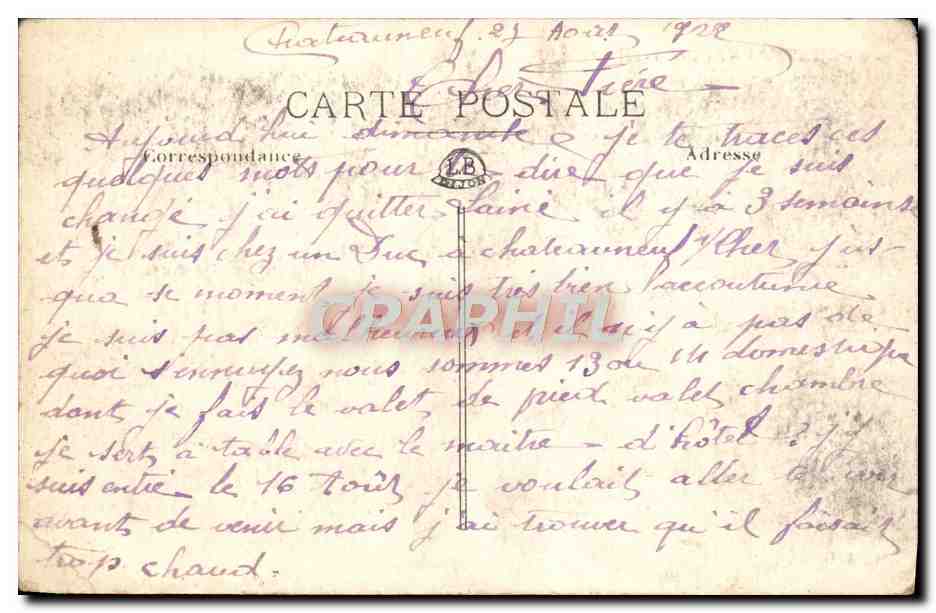 Chateauneuf 27 Aout 1922
Cher Frère
CARTE POSTALE
Aujourd hui dimanche je te traces ces
Correspondance
Adresse
LB
DIJON
quelques mots pour te dire que je suis
changé j'ai quitter il y a 3 semaines
et je suis chez un Duc a chateauneuf s/Cher jus-
qua se moment je suis très bien accoutumé
je suis pas malheureux et il n'y a pas de
CRAPHIL
quoi s'ennuyez nous sommes 13 ou 14 domestique
dont je fais le valet de pied valet chambre
je sert à table avec le maitre d'hôtel j'y
suis entré le 16 Août je voulait aller te voir
avant de venir mais j'ai trouver qu'il faisait
trop chaud.